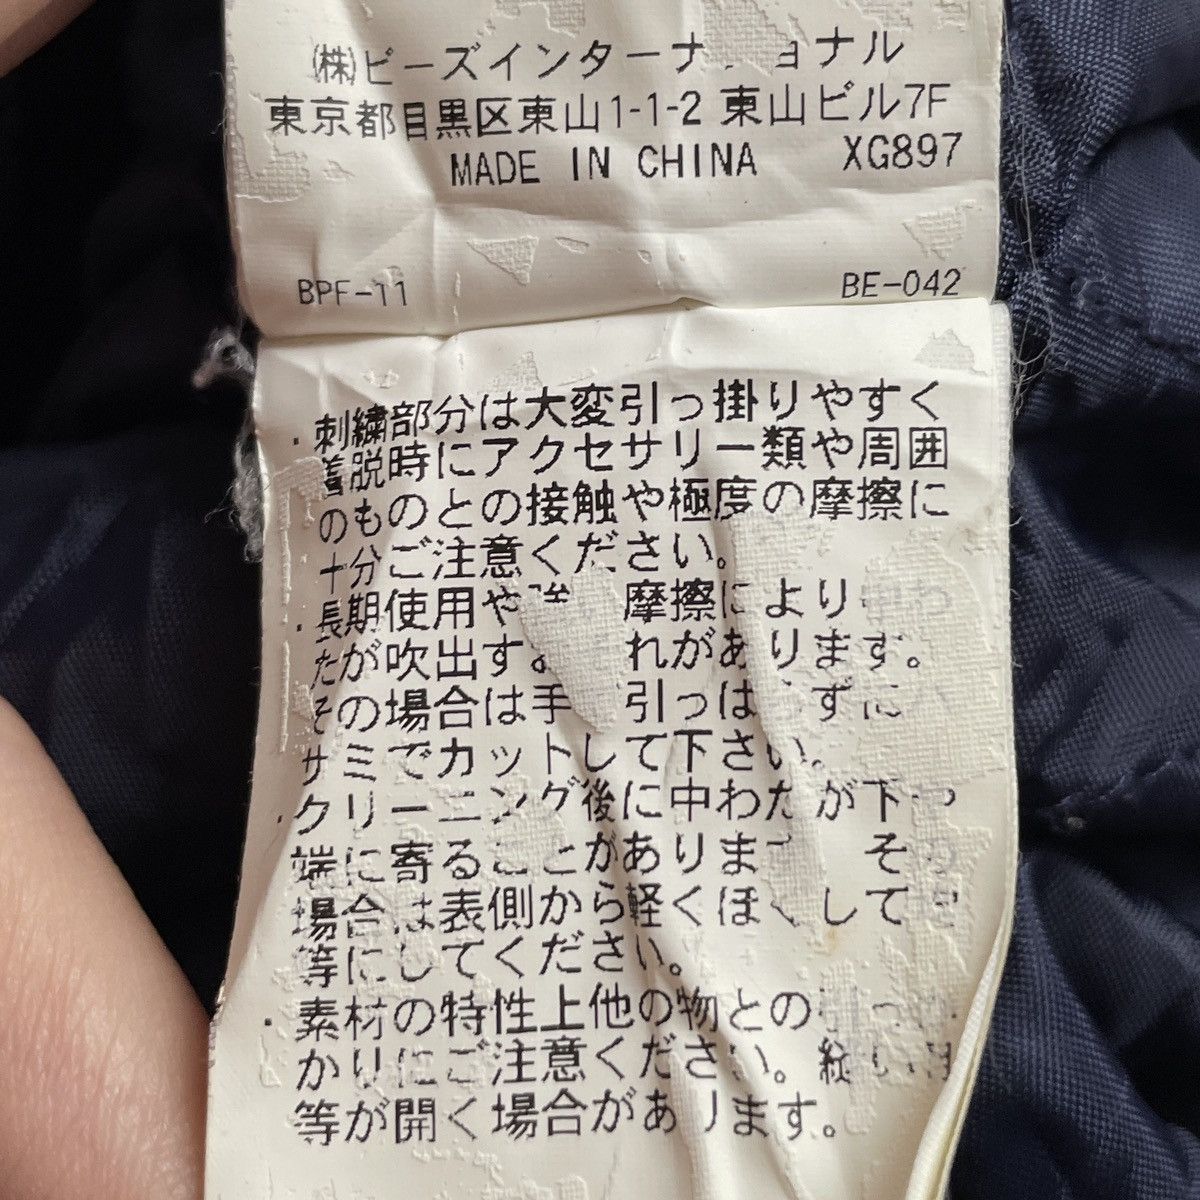 (株)ピーズインターナ ョナル
東京都目黒区東山1-1-2 東山ビル7F
MADE IN CHINA XG897
BPF-11 BE-042
・刺繍部分は大変引っ掛りやすく
着脱時にアクセサリー類や周囲
のものとの接触や極度の摩擦に
十分ご注意ください。
・長期使用や 摩擦により中わ
たが吹出す れがあります。
その場合は手 引っぱ ずに
サミでカットして下さい。
・クリーニング後に中わたが下や
端に寄ることがありま そ
場合は表側から軽くほぐして
等にしてください。
・素材の特性上他の物との
かりにご注意ください。
等が開く場合があります。